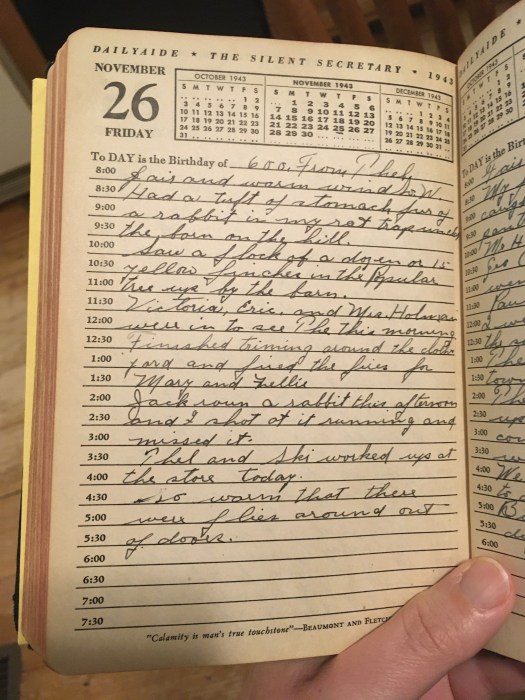 DAILYAIDE ★ THE SILENT SECRETARY ★ 1943
NOVEMBER
26
FRIDAY
OCTOBER 1943
S M T W T F S
.. .. .. .. .. 1 2
3 4 5 6 7 8 9
10 11 12 13 14 15 16
17 18 19 20 21 22 23
24 25 26 27 28 29 30
31 .. .. .. .. .. ..
NOVEMBER 1943
S M T W T F S
.. 1 2 3 4 5 6
7 8 9 10 11 12 13
14 15 16 17 18 19 20
21 22 23 24 25 26 27
28 29 30 .. .. .. ..
DECEMBER 1943
S M T W T F S
.. .. .. 1 2 3 4
5 6 7 8 9 10 11
12 13 14 15 16 17 18
19 20 21 22 23 24 25
26 27 28 29 30 31 ..
To DAY is the Birthday of 600. From Phel
8:00 Fair and warm wind S.W.
8:30 Had a tuft of stomach fur of
9:00 a rabbit in my rat trap
9:30 the barn on the hill.
10:00 Saw a flock of a dozen or 15
10:30 yellow finches in the Popular
11:00 tree up by the barn.
11:30 Victoria, Eric, and Mrs. Holman
12:00 were in to see Phe this morning
12:30 Finished triming around the
1:00 yard and fixed the fires for
1:30 Mary and Nellie
2:00 Jack roun a rabbit this afternoon
2:30 and I shot at it running and
3:00 missed it.
3:30 Phel and Ski worked up at
4:00 the store today.
4:30 So warm that there
5:00 were flies around out
5:30 of doors.
6:00
6:30
7:00
7:30
"Calamity is man's true touchstone"—BEAUMONT AND FLETCH